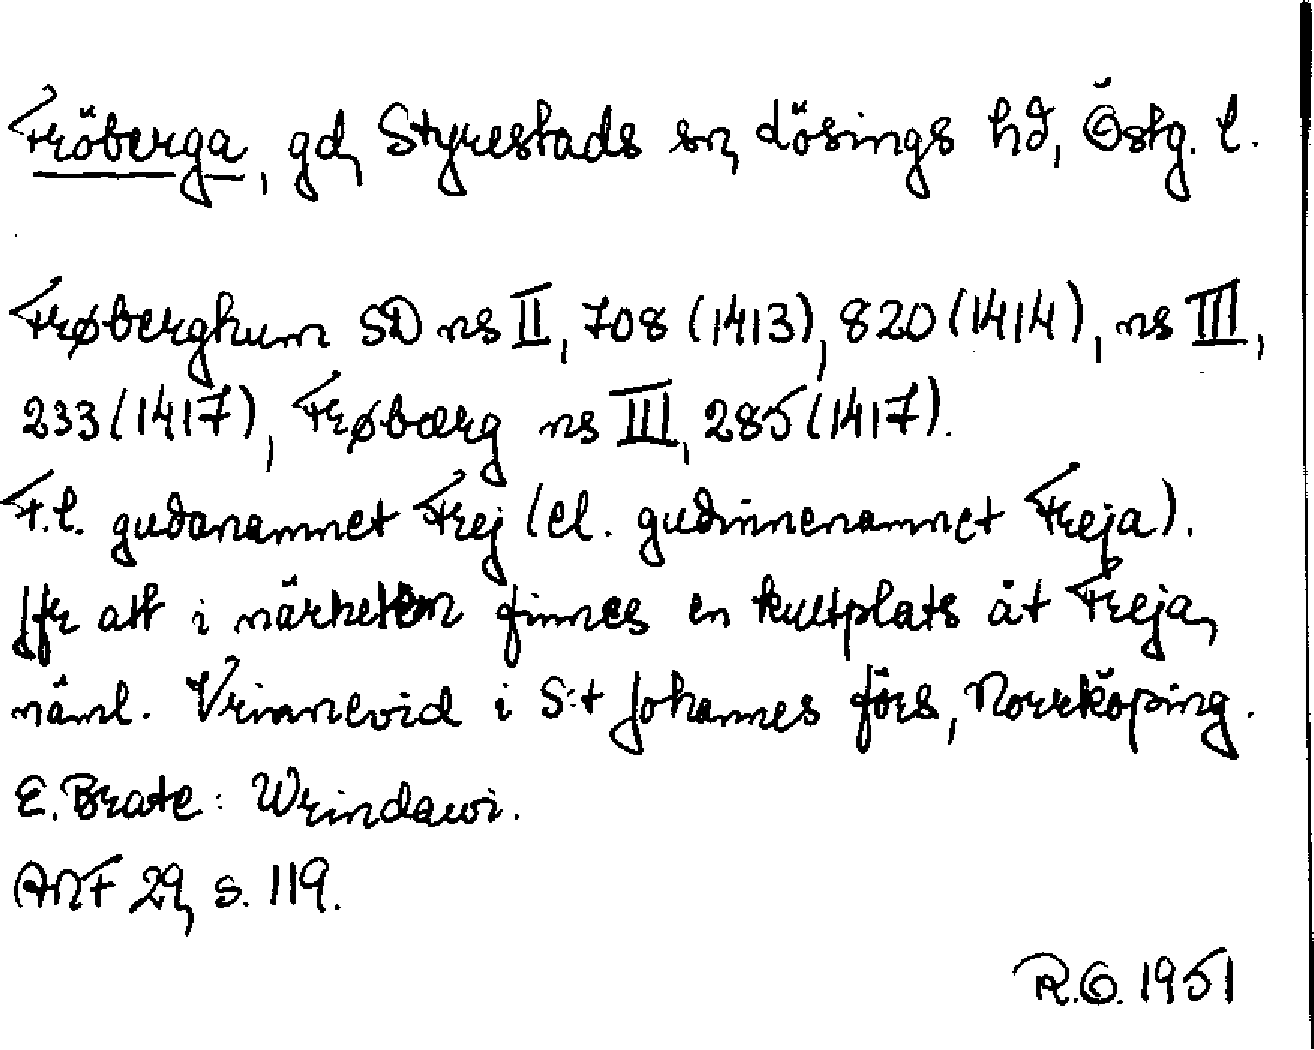 Fröberga, gd, Styrestads sn, Lösings hd, Östg. l.
Frøberghum SD ns II, 708 (1413), 820 (1414), ns III,
233 (1417), Frøbærg ns III, 285 (1417).
F.l. gudanamnet Frej (el. gudinnenamnet Freja).
Jfr att i närheten finnes en kultplats åt Freja,
näml. Vrinnevid i S:t Johannes förs, Norrköping.
E. Brate: Wrindawi.
ANF 29, s. 119.
R.O. 1951